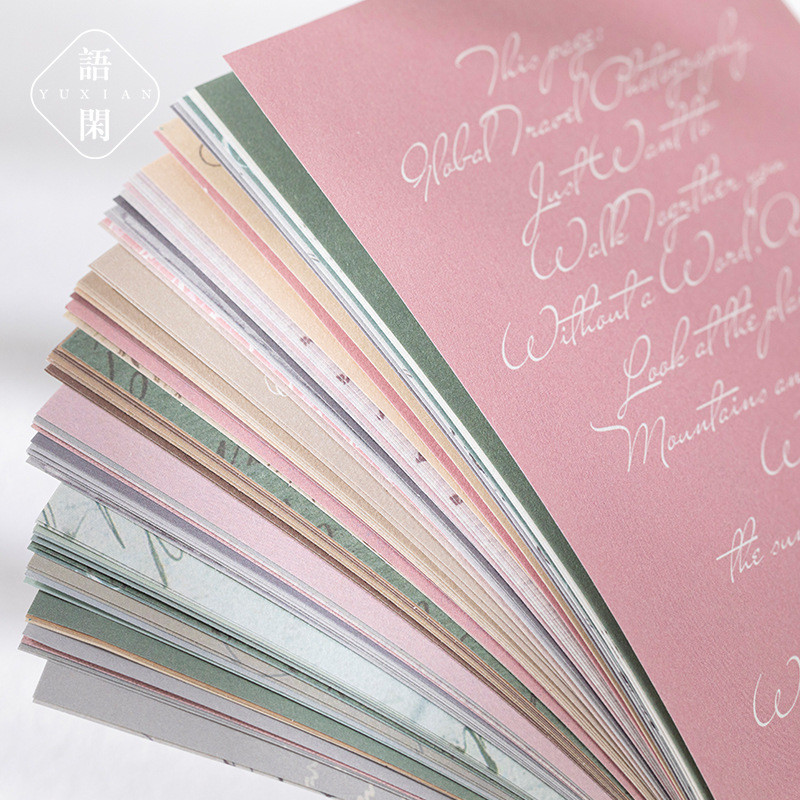 語
YUXIAN
閑
This page:
Global Travel Photography
Just Want to
Walk Together you
Without a Word.
Look at the
Mountains
the